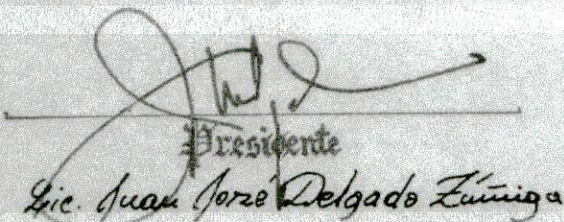 Presidente
Lic. Juan José Delgado Zúñiga